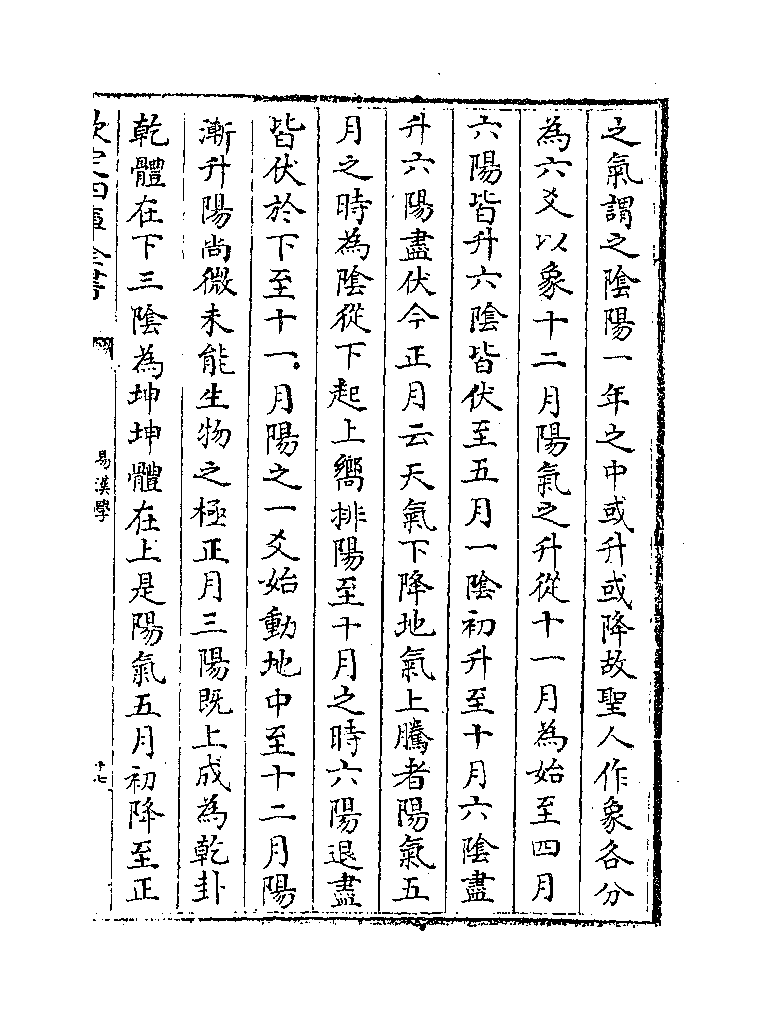 之氣謂之陰陽一年之中或升或降故聖人作象各分
為六爻以象十二月陽氣之升從十一月為始至四月
六陽皆升六陰皆伏至五月一陰初升至十月六陰盡
升六陽盡伏今正月云天氣下降地氣上騰者陽氣五
月之時為陰從下起上嚮排陽至十月之時六陽退盡
皆伏於下至十一月陽之一爻始動地中至十二月陽
漸升陽尚微未能生物之極正月三陽既上成為乾卦
乾體在下三陰為坤坤體在上是陽氣五月初降至正
欽定四庫全書
易漢學
十七